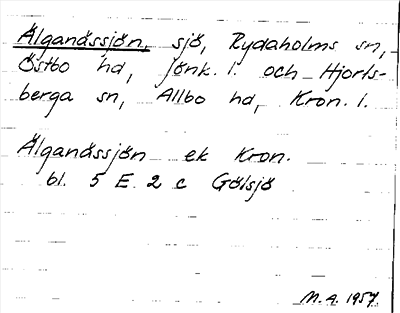 Älganässjön, sjö, Rydaholms sn,
Östbo hd, Jönk. l. och Hjorts-
berga sn, Allbo hd, Kron. l.
Älganässjön ek Kron.
bl. 5 E 2 c Gölsjö
M. A. 1957